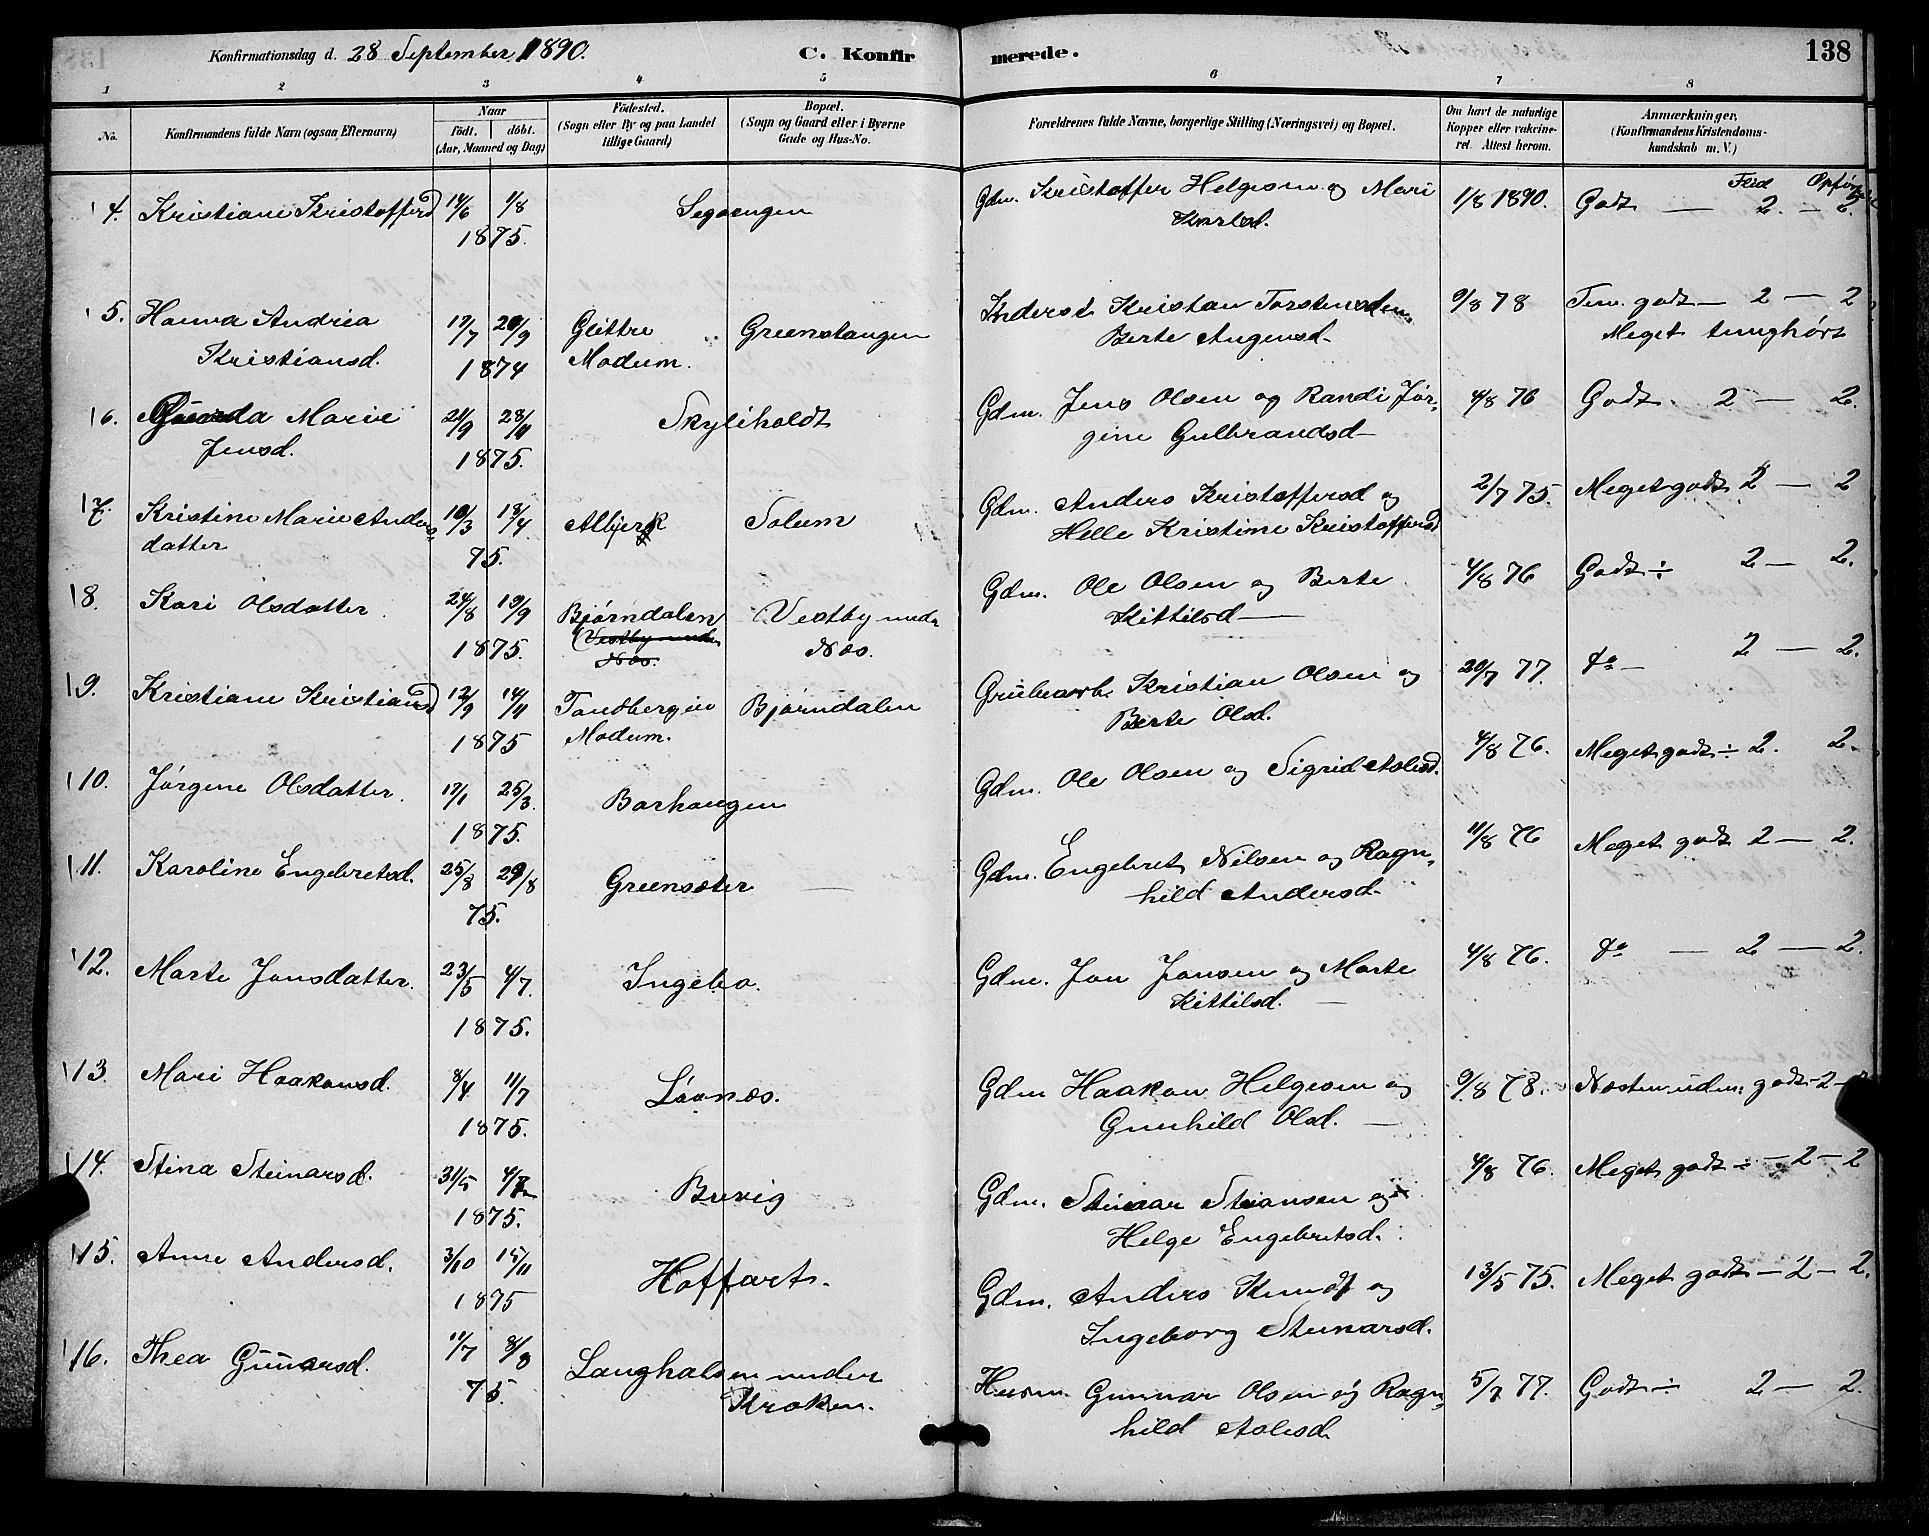 Konfirmationsdag d. 28 September 1890. C. Konfir merede. 138
1 2 3 4 5 6 7 8
No. Konfirmandens fulde Navn (ogsaa Efternavn) Naar født. døbt. (Aar, Maaned og Dag) Fødested. (Sogn eller By og paa Landet tillige Gaard) Bopæl. (Sogn og Gaard eller i Byerne Gade og Hus-No. Forældrenes fulde Navne, borgerlige Stilling (Næringsvei) og Bopæl. Om havt de naturlige Kopper eller vakcineret. Attest herom. Anmærkninger. (Konfirmandens Kristendomskundskab m. V.)
Flid
4. Kristiane Kristofferd 14/6 1/8 Gdm. Kristoffer Helgesen og Mari 1/8 1890. Godt — 2. — 2.
1875.
5. Andrea 17/7 26/9 Modum. Kristian Torstensen 9/8 78 Tem. godt — 2 — 2
Kristiansd. 1874 Berte Meget tunghørt
6. Marie 21/9 28/11 Skyliholdt Gdm. Jens Olsen og Randi Jør- 4/8 76 Godt. 2 — 2.
Jensd. 1875. gine Gulbrandsd —
17. Kristine Marie Anders 10/3 18/4 Albjerk Solum Gdm. Anders Kristoffersd og 2/7 75. Meget godt 2 — 2
datter 75. Helle Kristine Kristoffersd
18. Kari Olsdatter. 24/8 19/9 Bjørndalen Vestby under Gdm. Ole Olsen og Berte 4/8 76 Godt ÷ 2 — 2.
1875. Vestby under Næs. Næs. Kittilsd —
19. Kristiane Kristiansd 12/9 14/11 Tandberg Bjørndalen Grubearb. Kristian Olsen og 20/7 77. do — 2 — 2.
1875 Modum. Berte Olsd.
10. Jørgine Olsdatter. 17/1 25/3. Barhaugen Gdm. Ole Olsen og Sigrid Aslesd. 4/8 76. Meget godt ÷ 2. 2.
1875.
11. Karoline Engebretsd. 25/8 29/8 Greensæter — Gdm. Engebret Nilsen og Ragn- 11/8 76 Meget godt 2 — 2.
75. hild Andersd —
12. Marte Jonsdatter. 23/5 4/7. Ingebo. Gdm. Jon Jonsen og Marte 4/8 76. do — 2 — 2.
1875. Kittilsd. —
13. Mari Haakonsd. 8/4 11/7 Løvnæs. Gdm Haakon Helgesen og 9/8 78. Næsten udm. godt - 2 -
1875. Gunhild Olsd. —
14. Stina Steinarsd. 31/5 Gdm. Steinar og 4/8 76. Meget godt ÷ - 2 - 2
1875. Helge Engebretsd.
15. Anne Andersd. 3/10 15/11 Hoffart. Gdm. Anders og 13/5 75. Meget godt — 2 — 2.
1875 Ingeborg Steinarsd.
16. Thea Gunnarsd. 11/7 8/8 Langhalsen under Husm. Gunnar Olsen og Ragn- 5/7 77. Godt ÷ 2 — 2.
75. Kroken. hild Aslesd.